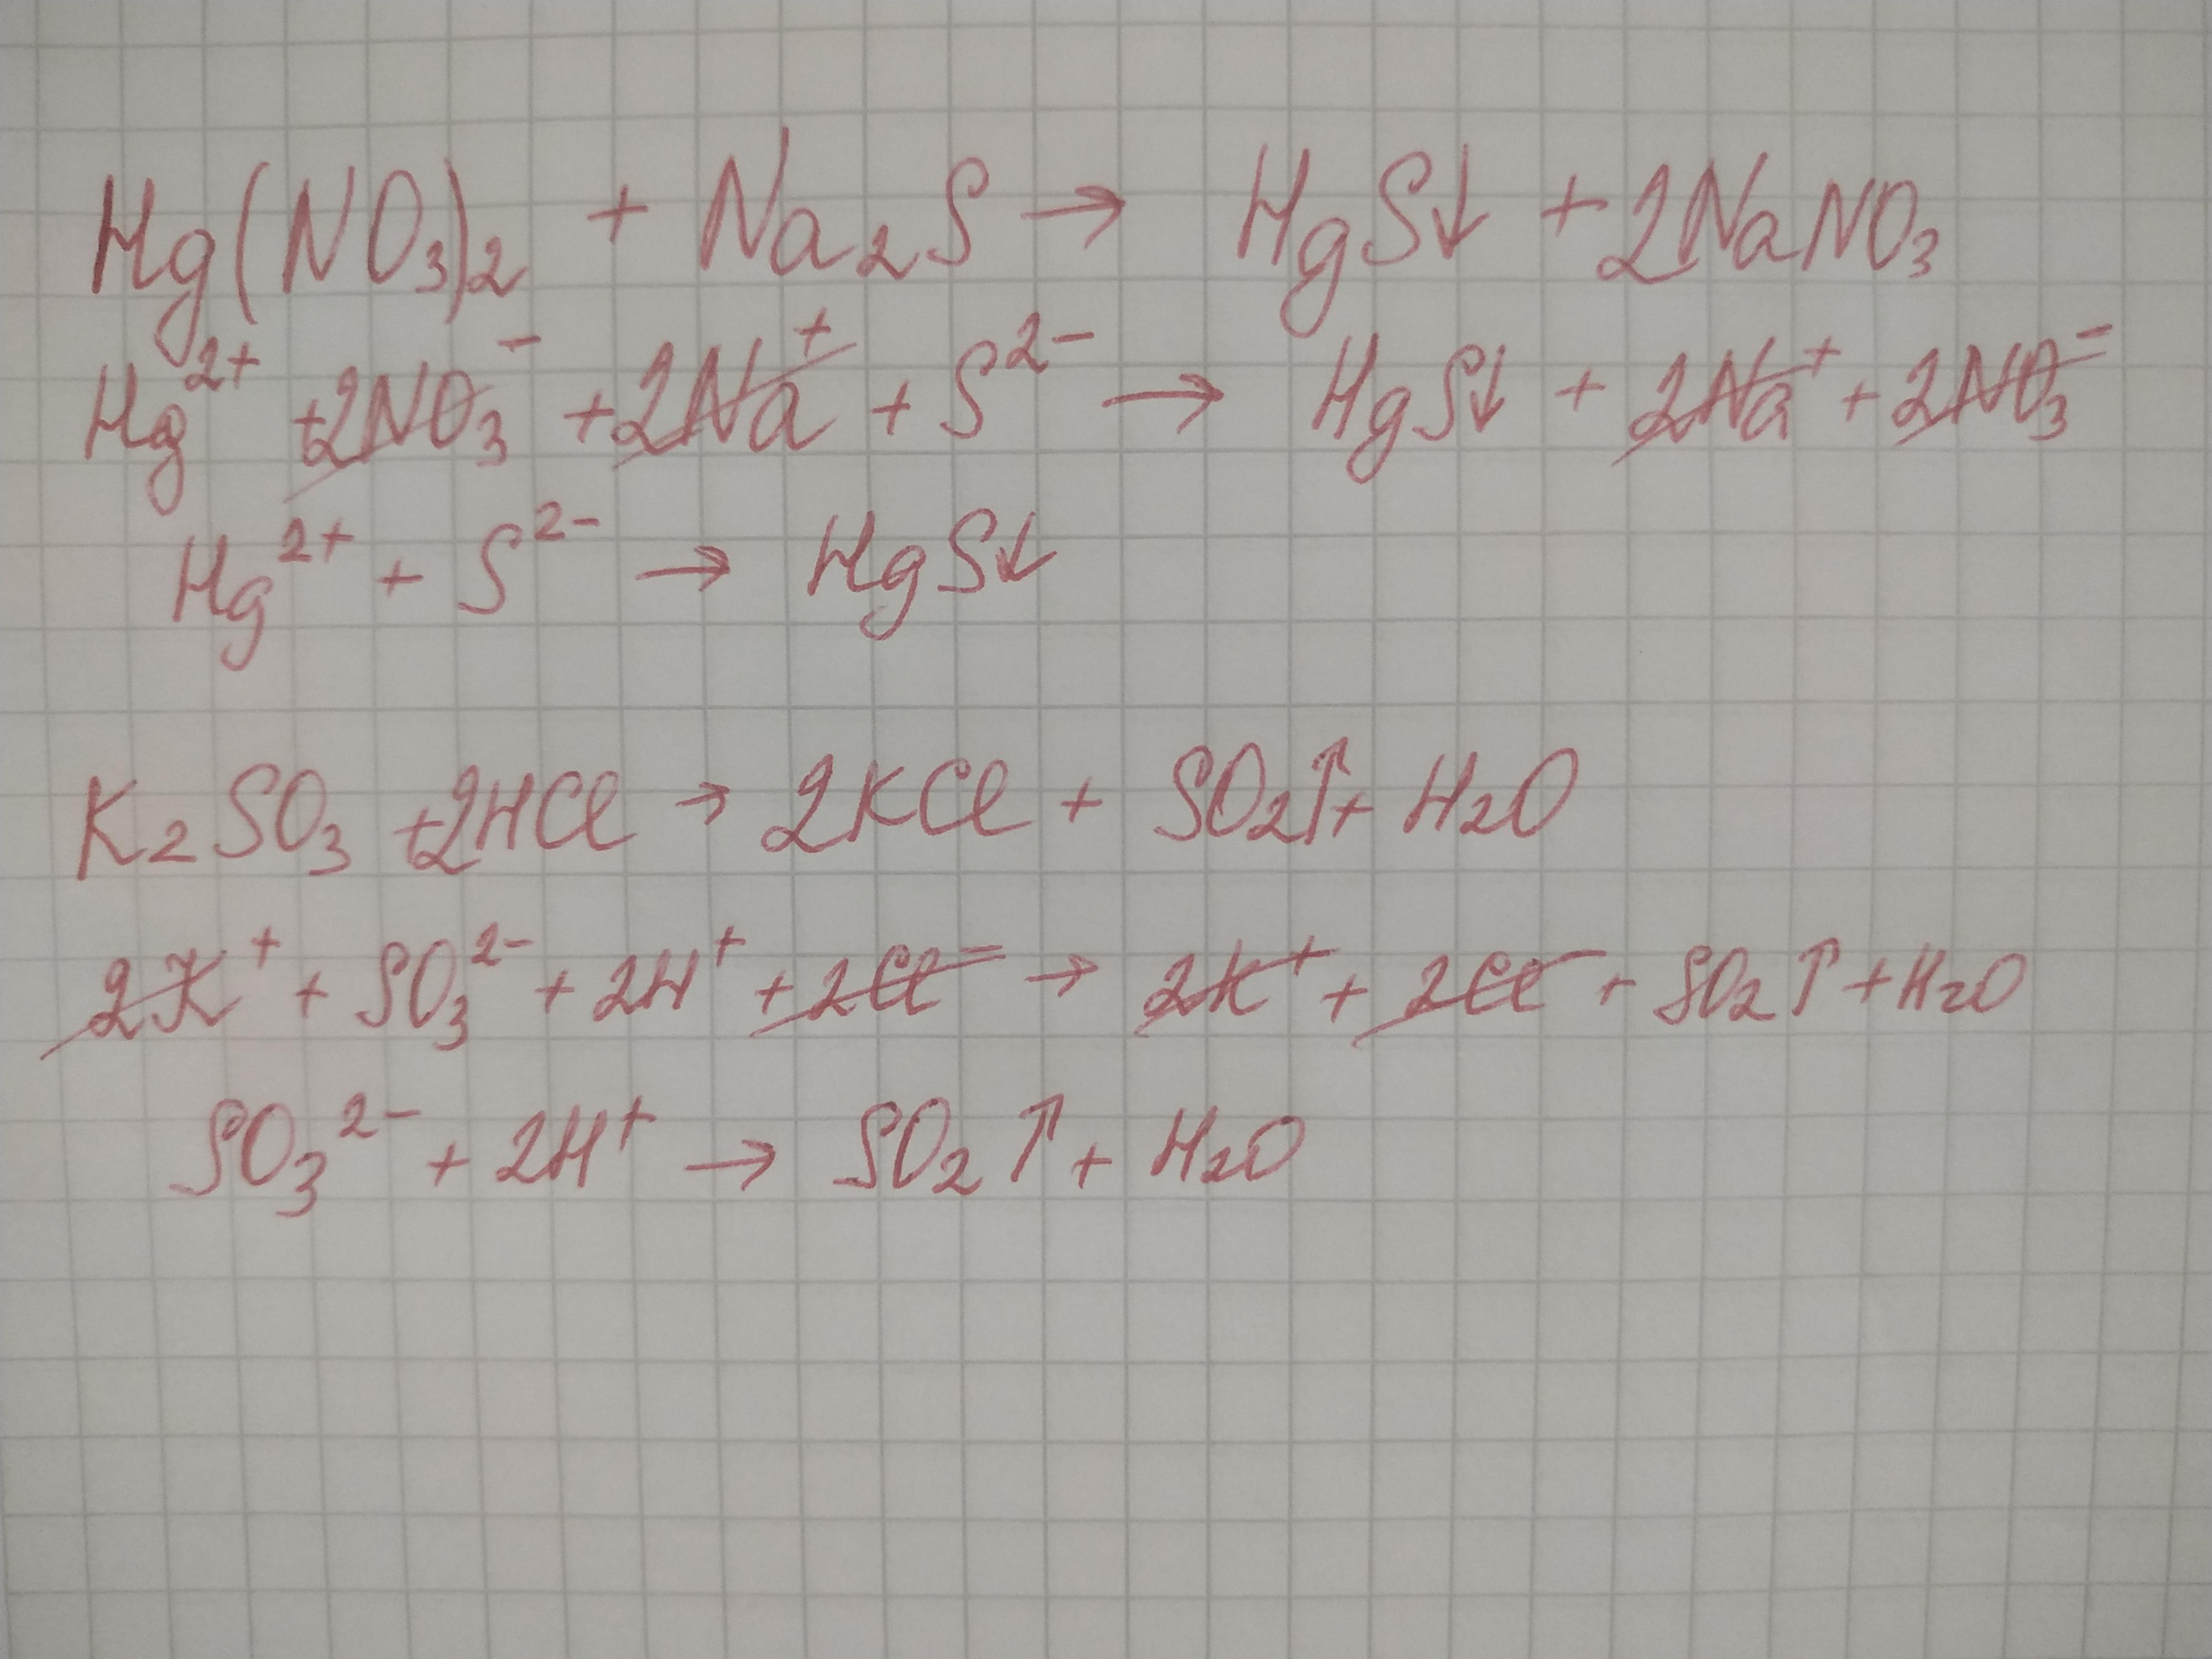 Hg(NO₃)₂ + Na₂S → HgS↓ + 2NaNO₃
Hg²⁺ + 2NO₃⁻ + 2Na⁺ + S²⁻ → HgS↓ + 2Na⁺ + 2NO₃⁻
Hg²⁺ + S²⁻ → HgS↓
K₂SO₃ + 2HCl → 2KCl + SO₂↑ + H₂O
2K⁺ + SO₃²⁻ + 2H⁺ + 2Cl⁻ → 2K⁺ + 2Cl⁻ + SO₂↑ + H₂O
SO₃²⁻ + 2H⁺ → SO₂↑ + H₂O